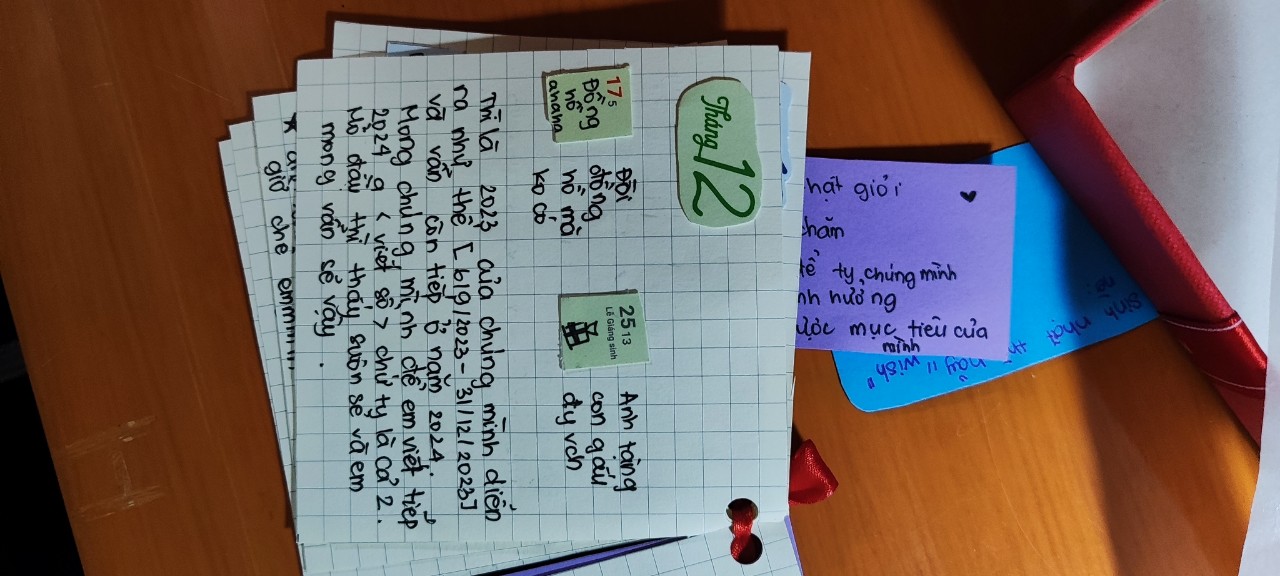 Tháng 12
17 5
Đồng
hồ
anana
Đôi
đồng
hồ mà
ko có
25 13
Lễ Giáng sinh
Anh tặng
con gấu
đy vch
Thì là 2023 của chúng mình diễn
ra như thế [b19/2023 - 31/12/2023]
và vẫn còn tiếp ở năm 2024.
Mong chúng mình để em viết tiếp
2024 9 < viết sổ > chứ ty là cả 2.
Mở đầu thì thấy suôn sẻ và em
mong vẫn sẽ vậy.
giờ chê emmm
hật giỏi
chăm
để ty, chúng mình
nh hưởng
ược mục tiêu của
mình
sinh nhật
này "wish"